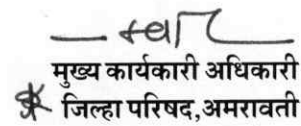 मुख्य कार्यकारी अधिकारी
जिल्हा परिषद,अमरावती